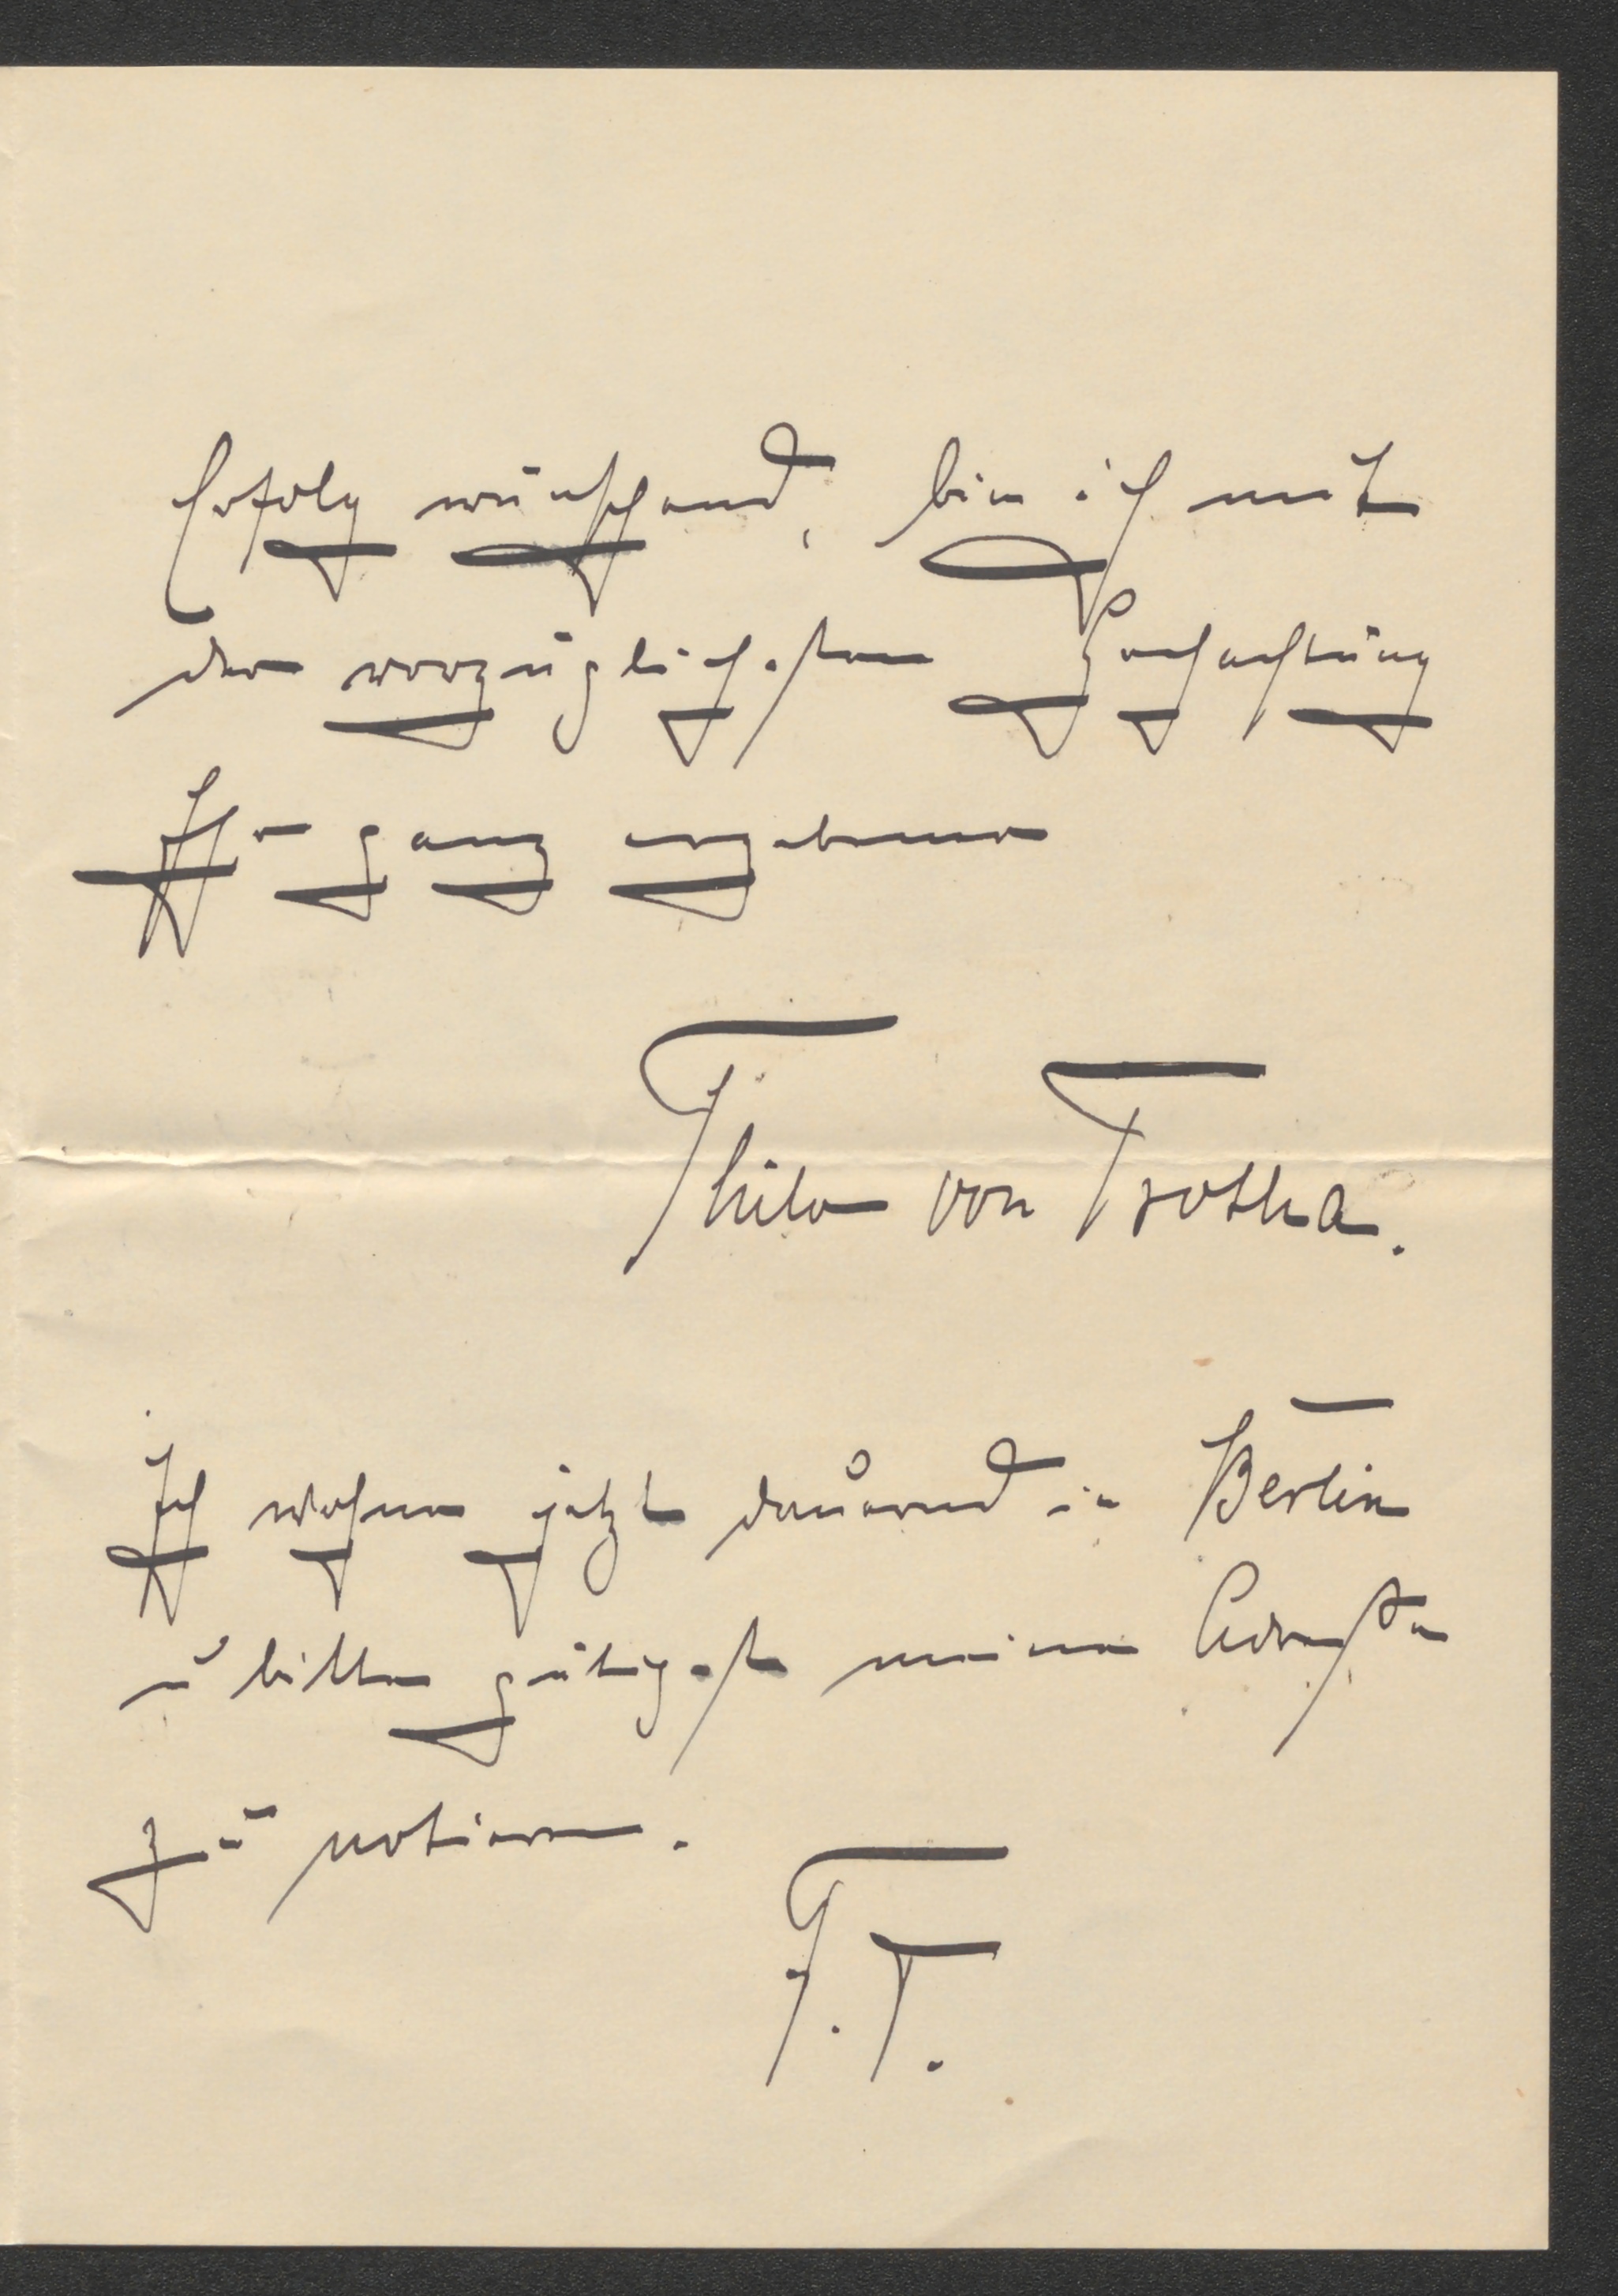 Erfolg wünschend, bin ich mit
der vorzüglichsten Hochachtung
Ihr ganz ergebener
Thilo von Trotha.
Ich wohne jetzt dauernd in Berlin
u bitte gütigst meine Adresse
zu notieren.
T. T.